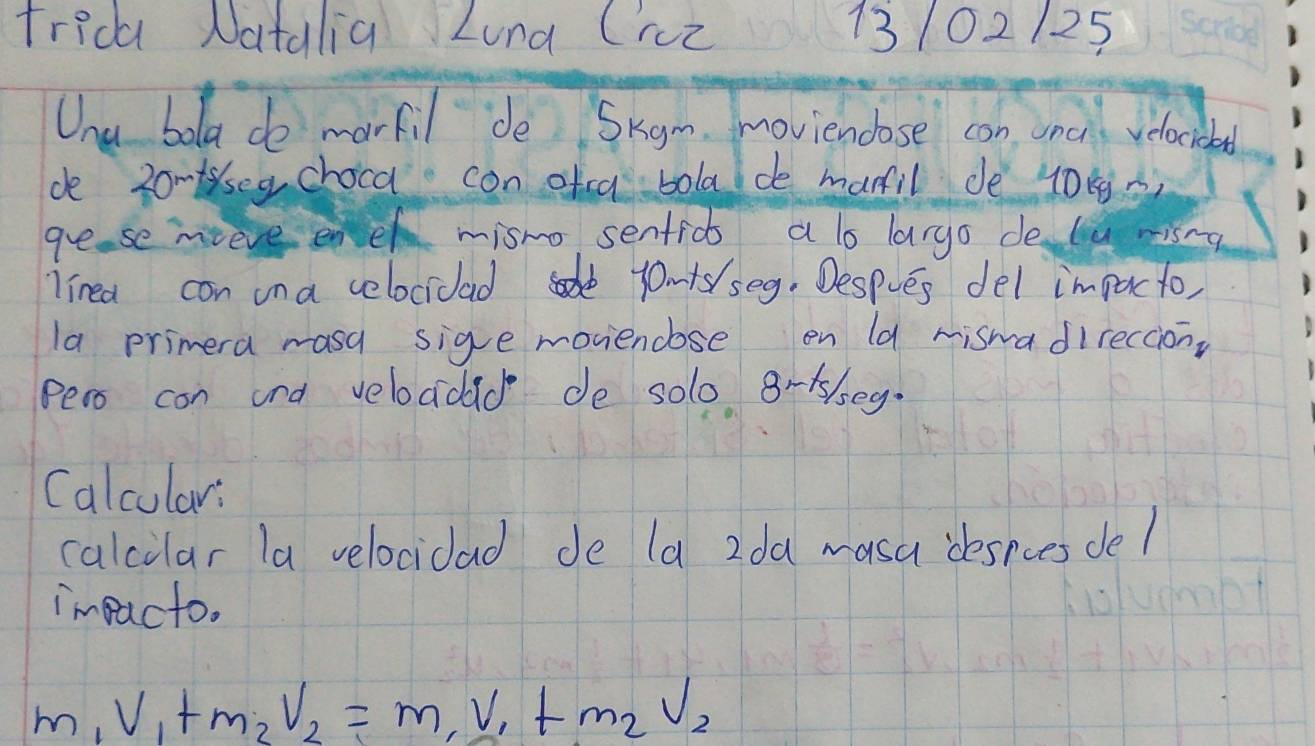 Frida Natalia Luna Cruz 13/02/25
Scribe
Una bola de marfil de 5Kgm moviendose con una velocidad
de 20mts/seg choca con otra bola de marfil de 10kgm,
que se mueve en el mismo sentido a lo largo de la misma
línea con una velocidad de 10mts/seg. Después del impacto,
la primera masa sigue moviendose en la misma dirección,
pero con una velocidad de solo 8mts/seg.
Calcular:
calcular la velocidad de la 2da masa despues del
impacto.
m₁V₁+m₂V₂ = m₁V₁ + m₂V₂